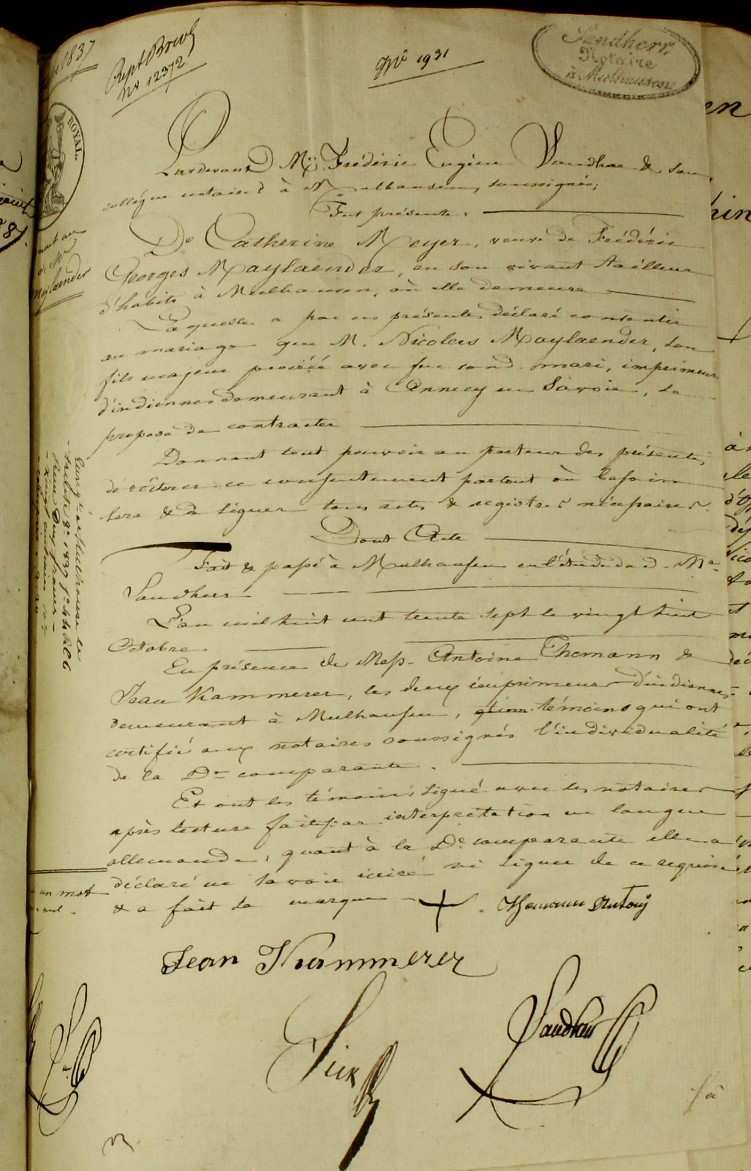 1837
Rept Brevets
No 12372
No 1931
Sandherr,
Notaire
à Mulhausen
ROYAL.
Pardevant Me Frédéric Eugène Sandherr & son
collègue notaires à Mulhausen, soussignés,
Fut présente.
De Catherine Meyer, veuve de Frédéric
Georges Maylaender, en son vivant tailleur
d'habits à Mulhausen, où elle demeure
Laquelle a par ces présentes déclaré consentir
au mariage que M. Nicolas Maylaender, son
fils majeur procréé avec feu son d. mari, imprimeur
d'indiennes demeurant à Annecy en Savoie, se
propose de contracter
Donnant tout pouvoir au porteur des présentes
de réitérer ce consentement partout où besoin
sera & de signer tous actes & registres nécessaires.
Dont Acte
Fait & passé à Mulhausen en l'étude de d. Me
Sandherr
L'an mil huit cent trente sept le vingt huit
Octobre
En présence de Mess. Antoine Thomann &
Jean Kammerer, les deux imprimeurs d'indiennes
demeurant à Mulhausen, témoins qui ont
certifié aux notaires soussignés l'individualité
de la De comparante.
Et ont les témoins signé avec les notaires
après lecture faite par interprétation en langue
allemande, quant à la De comparante elle a
déclaré ne savoir écrire ni signer de ce requise
& a fait sa marque
Thomann Antony
Jean Kammerer
Sandherr
Maylaender
un mot